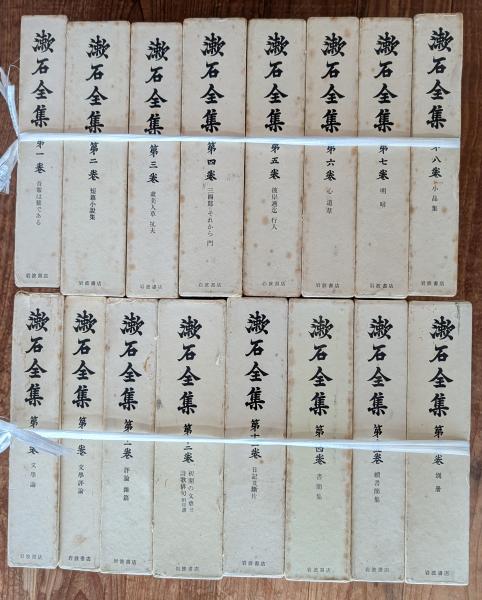 漱石全集 第一卷 吾輩は猫である 岩波書店
漱石全集 第二卷 短篇小說集 岩波書店
漱石全集 第三卷 虞美人草 坑夫 岩波書店
漱石全集 第四卷 三四郎 それから 門 岩波書店
漱石全集 第五卷 彼岸過迄 行人 岩波書店
漱石全集 第六卷 心 道草 岩波書店
漱石全集 第七卷 明暗 岩波書店
漱石全集 第八卷 小品集 岩波書店
漱石全集 第 卷 文學論 岩波書店
漱石全集 第 卷 文學評論 岩波書店
漱石全集 第 一卷 評論 雜篇 岩波書店
漱石全集 第 二卷 初期の文章 詩歌俳句 岩波書店
漱石全集 第十 卷 日記及斷片 岩波書店
漱石全集 第 四卷 書簡集 岩波書店
漱石全集 第 卷 續書簡集 岩波書店
漱石全集 第 卷 別册 岩波書店